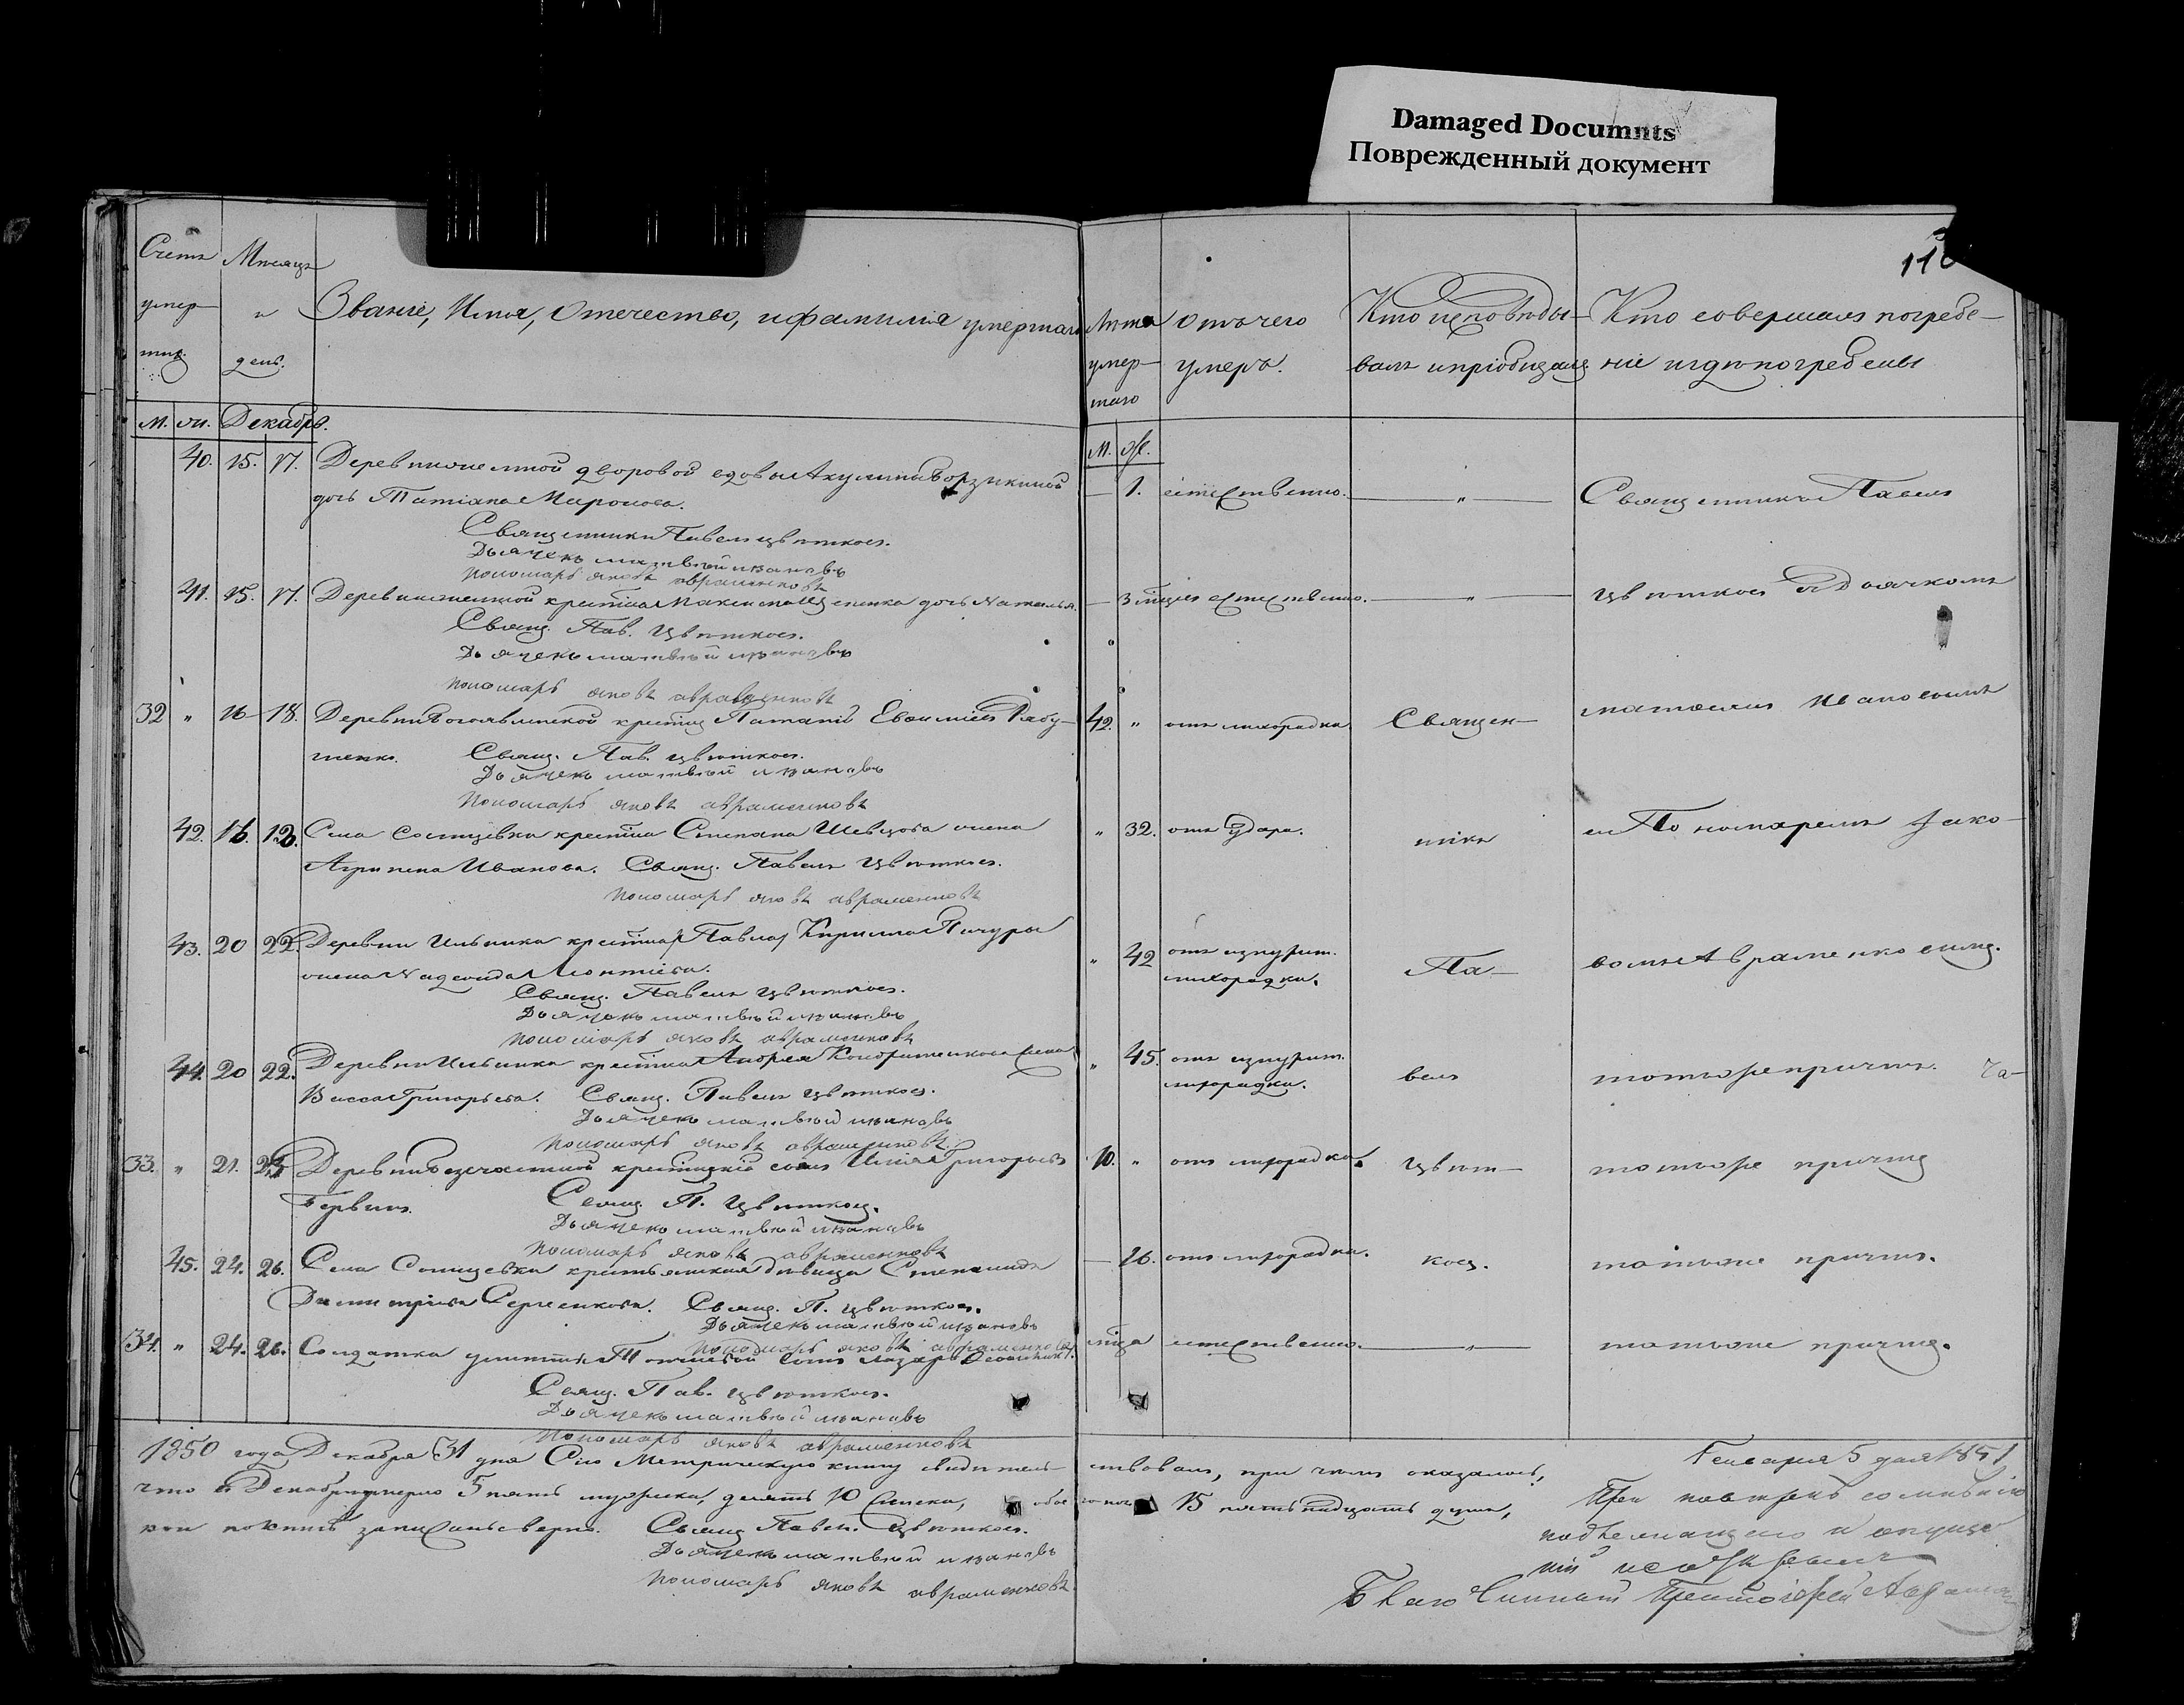 Damaged Documnts
Поврежденный документ
Счетъ
умер-
шихъ.
Мѣсяцъ
и
день.
Званіе, Имя, Отечество, и фамилія умершаго
Лѣта
умер-
шаго
Отъ чего
умеръ.
Кто исповѣды-
валъ и пріобщалъ
Кто совершалъ погребе-
ніе и гдѣ погребены
М. Ж. Декабрь.
М. Ж.
40. 15. 17. Деревни дворовой вдовы Акулины
дочь Татіана Миронова.
— 1. естественно. — „ — Священникъ Павелъ
Священникъ Павелъ Цвѣтковъ.
Дьячекъ Матвѣй Ивановъ
Пономарь Яковъ Авраменковъ
41. 15. 17. крестьян Максима дочь Наталья.
— естественно. — „ — Цвѣтковъ съ Дьячкомъ
Свящ. Пав. Цвѣтковъ.
Дьячекъ Матвѣй Ивановъ
Пономарь Яковъ Авраменковъ
32 „ 16 18. Деревни Богоявленской Евѳиміевъ Рябу-
шенко.
42. „ отъ лихорадки. Священ- Матвѣемъ Ивановымъ
Свящ. Пав. Цвѣтковъ.
Дьячекъ Матвѣй Ивановъ
Пономарь Яковъ Авраменковъ
42. 16. 18. Села Солнцевки крестьян Степана Шевцова жена
Агрипена Иванова. Свящ. Павелъ Цвѣтковъ.
„ 32. отъ удара. никъ и Пономаремъ Яко-
Пономарь Яковъ Авраменковъ
43. 20 22. Деревни Ильинки крестьян Павла Кирилла Пичуры
жена Надежда Леонтіева.
„ 42 отъ изнурит.
лихорадки. Па- вомъ Авраменковымъ.
Свящ. Павелъ Цвѣтковъ.
Дьячекъ Матвѣй Ивановъ
Пономарь Яковъ Авраменковъ
44. 20 22. Деревни Ильинки крестьян Андрея жена
Васса Григорьева. Свящ. Павелъ Цвѣтковъ.
„ 45. отъ изнурит.
лихорадки. велъ тотъ же причтъ.
Дьячекъ Матвѣй Ивановъ
Пономарь Яковъ Авраменковъ.
33. „ 21. 23 Деревни сынъ Илія Григорьевъ
10. „ отъ лихорадки. Цвѣт- тотъ же причтъ
Свящ. П. Цвѣтковъ.
Дьячекъ Матвѣй Ивановъ
Пономарь Яковъ Авраменковъ
45. 24. 26. Села Солнцевки крестьянская дѣвица Степанида
Димитріева Сергенкова. Свящ. П. Цвѣтковъ.
— 26. отъ лихорадки. ковъ. тотъ же причтъ.
Дьячекъ Матвѣй Ивановъ
Пономарь Яковъ Авраменковъ
34. „ 24. 26. Солдатки сынъ Лазарь
естественно. — „ — тотъ же причтъ.
Свящ. Пав. Цвѣтковъ.
Дьячекъ Матвѣй Ивановъ
Пономарь Яковъ Авраменковъ
1850 года Декабря 31 дня Сію Метрическую книгу свидѣтель-
ствовали, при чемъ оказалось,
что въ Декабрѣ умерло 5 пять мужеска, десять 10 женска, обое
15 пятьнадцать душъ,
кои записаны вѣрно. Свящ. Павелъ Цвѣтковъ.
Дьячекъ Матвѣй Ивановъ
Пономарь Яковъ Авраменковъ
Генваря 5 дня 1851
При повѣркѣ сомнѣнію
подлежащего и опуще
ній
Благочинный Протоіерей